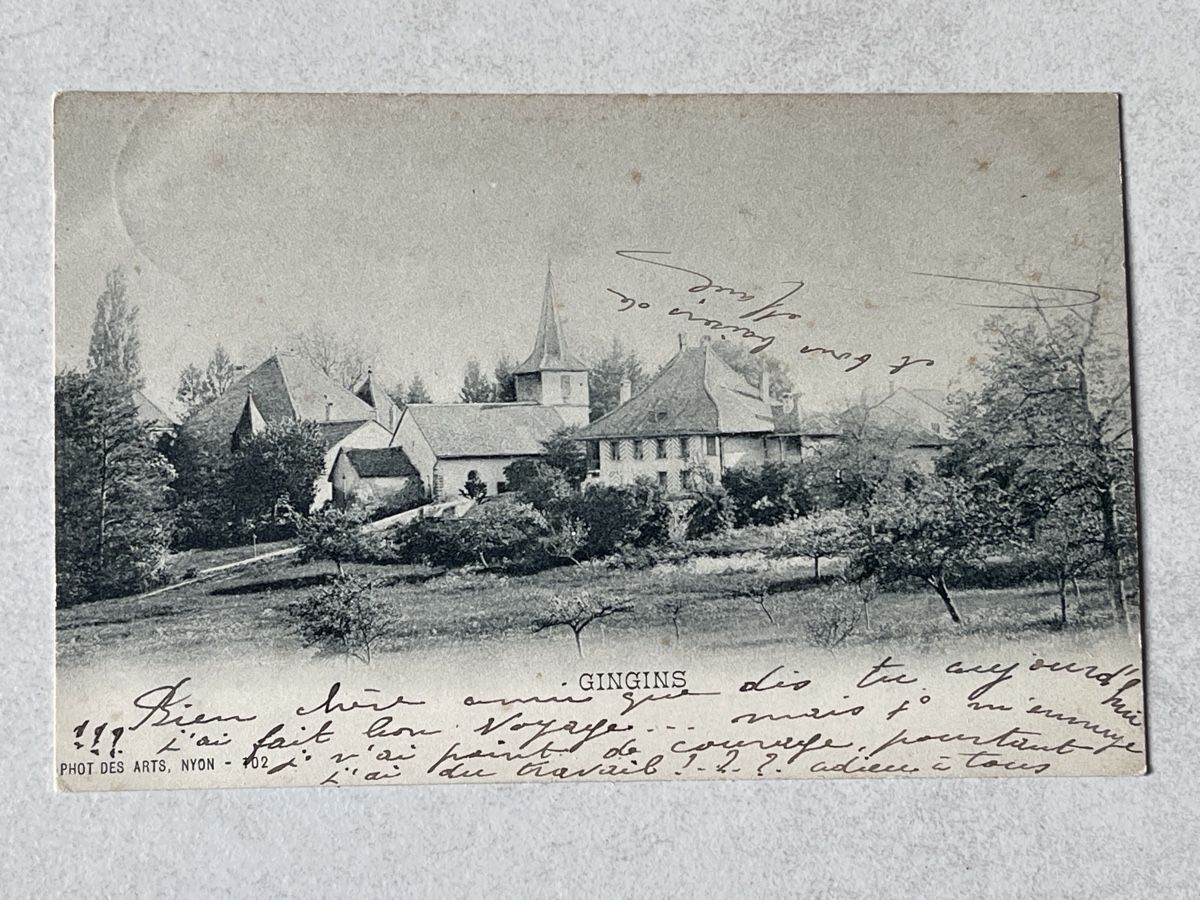 GINGINS
Bien chère amie que dis tu aujourd'hui
!!! j'ai fait bon voyage... mais j' m'ennuye
j' n'ai point de courage, pourtant
j'ai du travail !.?.? adieu à tous
et bons baisers de
PHOT DES ARTS, NYON - 102